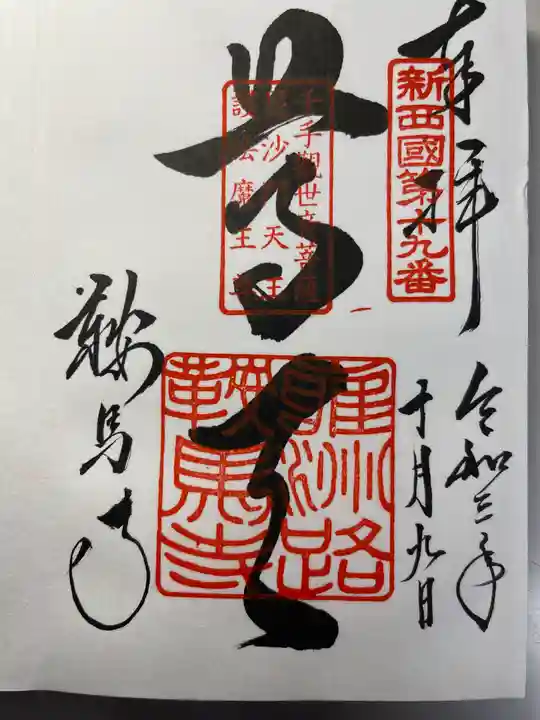 奉拝
新西國第十九番
令和三年
十月九日
千手觀世音菩薩
毘沙門天王
護法魔王尊
尊天
雍州路
鞍馬寺
鞍馬寺